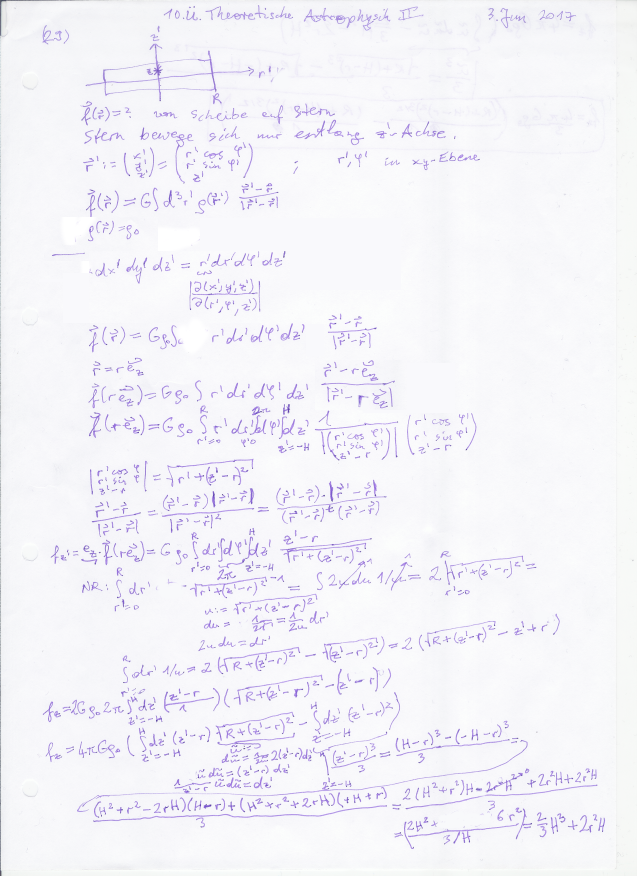 10.Ü. Theoretische Astrophysik II 3. Jun 2017
(29)
z'
z * r'
R
f⃗(r⃗)=? von Scheibe auf Stern
Stern bewege sich nur entlang z'-Achse.
r⃗' := (x' y' z') = (r' cos φ' r' sin φ' z') ; r', φ' in xy-Ebene
f⃗(r⃗) = G∫d³r' ρ(r⃗') (r⃗'-r⃗)/|r⃗'-r⃗|
ρ(r⃗)=ρ₀
dx' dy' dz' = r'dr'dφ'dz'
|∂(x',y',z')/∂(r',φ',z')|
f⃗(r⃗) = Gρ₀∫ r'dr'dφ'dz' (r⃗'-r⃗)/|r⃗'-r⃗|
r⃗ = r e⃗z
f⃗(re⃗z) = Gρ₀ ∫ r'dr'dφ'dz' (r⃗'-re⃗z)/|r⃗'-re⃗z|
f⃗(re⃗z) = Gρ₀ ∫_{r'=0}^{R} r'dr' ∫_{φ'=0}^{2π} dφ' ∫_{z'=-H}^{H} dz' 1/|(r' cos φ' r' sin φ' z'-r)| (r' cos φ' r' sin φ' z'-r)
|r' cos φ' r' sin φ' z'-r| = √(r'+(z'-r)²)
(r⃗'-r⃗)/|r⃗'-r⃗| = (r⃗'-r⃗)|r⃗'-r⃗|/|r⃗'-r⃗|² = (r⃗'-r⃗)·|r⃗'-r⃗|/(r⃗'-r⃗)(r⃗'-r⃗)
f_z' = e⃗z·f⃗(re⃗z) = Gρ₀ ∫_{r'=0}^{R} dr' ∫dφ' ∫_{z'=-H}^{H} dz' (z'-r)/√(r'+(z'-r)²)
2π
NR: ∫_{r'=0}^{R} dr' √(r'+(z'-r)²)^{-1} = ∫ 2u du 1/u = 2 |√(r'+(z'-r)²)|_{r'=0}^{R} =
u := √(r'+(z'-r)²)
du = 1/2√ = 1/2u dr'
2u du = dr'
∫_{r'=0}^{R} dr' 1/u = 2 (√(R+(z'-r)²) - √((z'-r)²)) = 2 (√(R+(z'-r)²) - z'+r)
f_z = 2Gρ₀ 2π ∫_{z'=-H}^{H} dz' ((z'-r)/1) (√(R+(z'-r)²) - (z'-r))
f_z = 4πGρ₀ (∫_{z'=-H}^{H} dz' (z'-r) √(R+(z'-r)²) - ∫_{z'=-H}^{H} dz' (z'-r)²)
ũ :=
dũ = 1/2ũ 2(z'-r)dz'
ũdũ = (z'-r)dz'
1/(z'-r) ũdũ = dz'
|(z'-r)³/3|_{z'=-H}^{H} = ((H-r)³-(-H-r)³)/3 =
((H²+r²-2rH)(H-r)+(H²+r²+2rH)(+H+r))/3 = (2(H²+r²)H-2r²H+2r²H+2r²H)/3
= (2H²+ 6r²)/3/H = 2/3 H³+2r²H